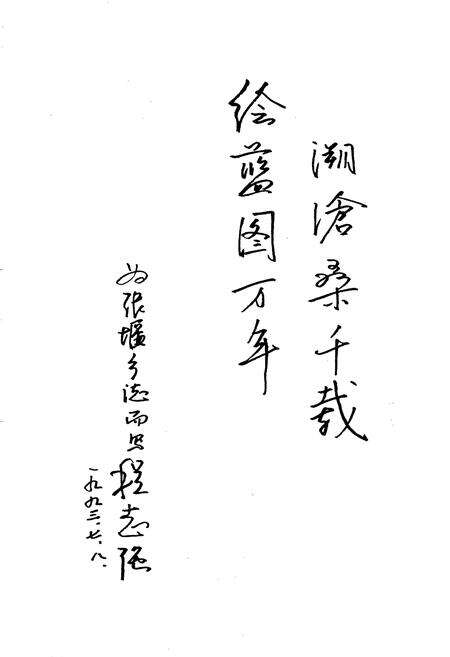 溯滄桑千载
绘蓝图万年
为张堰乡志而题 程志强
一九九三.七.八.